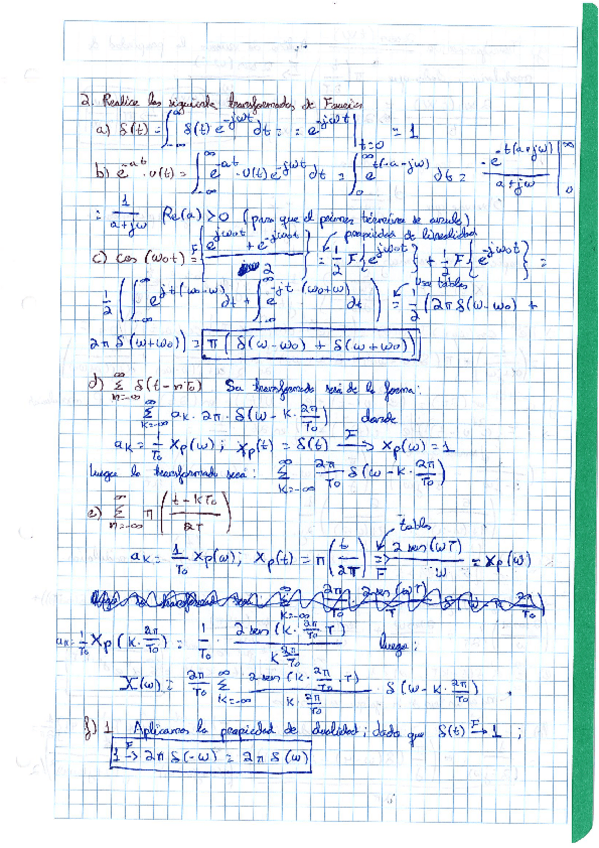 2. Realice las siguientes transformadas de Fourier
a) δ(t) = ∫_{-∞}^{∞} δ(t) e^{-jωt} dt = = e^{-jωt} |_{t=0} = 1
b) e^{-at} · u(t) = ∫_{-∞}^{∞} e^{-at} · u(t) e^{-jωt} dt = ∫_{0}^{∞} e^{t(-a-jω)} dt = -e^{-t(a+jω)} / (a+jω) |_{0}^{∞}
= 1/(a+jω) Re(a) > 0 (para que el primer término se anule)
propiedad de linealidad
c) cos(ω₀t) = F{(e^{jω₀t} + e^{-jω₀t})/2} = 1/2 F{e^{jω₀t}} + 1/2 F{e^{-jω₀t}} =
1/2 (∫_{-∞}^{∞} e^{-jt(ω₀-ω)} dt + ∫_{-∞}^{∞} e^{-jt(ω₀+ω)} dt) = 1/2 (2π δ(ω-ω₀) +
Usa tablas
2π δ(ω+ω₀)) = π(δ(ω-ω₀) + δ(ω+ω₀))
d) ∑_{n=-∞}^{∞} δ(t-nT₀) Su transformada será de la forma:
∑_{k=-∞}^{∞} a_k · 2π · δ(ω - k · 2π/T₀) donde
a_k = 1/T₀ X_p(ω); X_p(t) = δ(t) –F→ X_p(ω) = 1
Luego la transformada será: ∑_{k=-∞}^{∞} 2π/T₀ δ(ω - k · 2π/T₀)
e) ∑_{n=-∞}^{∞} π((t-kT₀)/2T)
tablas
a_k = 1/T₀ X_p(ω); X_p(t) = π(t/2T) ⇒F 2 sen(ωT)/ω = X_p(ω)
a_k = 1/T₀ X_p(k · 2π/T₀) = 1/T₀ · 2 sen(k · 2π/T₀ · T) / (k 2π/T₀) luego:
X(ω) = 2π/T₀ ∑_{k=-∞}^{∞} 2 sen(k · 2π/T₀ · T) / (k · 2π/T₀) δ(ω - k · 2π/T₀).
f) 1 Aplicamos la propiedad de dualidad; dado que δ(t) –F→ 1 ;
1 –F→ 2π δ(-ω) = 2π δ(ω)